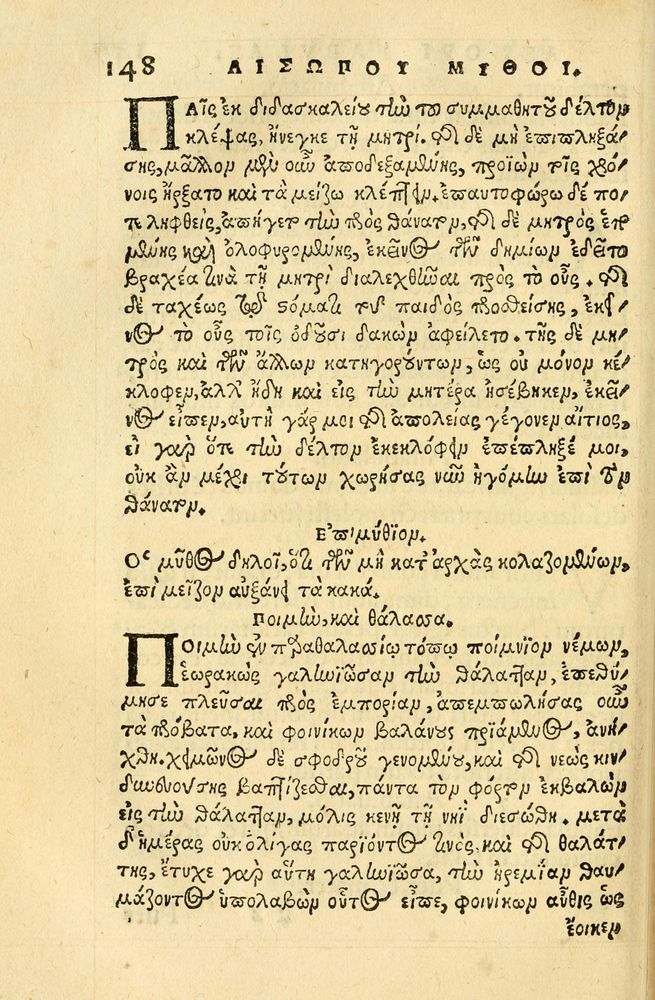 148 ΑΙΣΩΠΟΥ ΜΥΘΟΙ.
ΠΑῖς ἐκ διδασκαλείου τὴν τοῦ συμμαθητοῦ δέλτον
κλέψας, ἤνεγκε τῇ μητρί. τῆς δὲ μὴ ἐπιπληξά-
σης, μᾶλλον μὲν οὖν ἀποδεξαμένης, προϊὼν τοῖς χρό-
νοις ἤρξατο καὶ τὰ μείζω κλέπτειν. ἐπαυτοφώρῳ δέ πο-
τε ληφθεὶς, ἀπήγετο τὴν πρὸς θάνατον, τῆς δὲ μητρὸς ἑπο-
μένης καὶ ὀλοφυρομένης, ἐκεῖνος τῶν δημίων ἐδεῖτο
βραχέα τινὰ τῇ μητρὶ διαλεχθῆναι πρὸς τὸ οὖς. τῆς
δὲ ταχέως τῷ στόματι τοῦ παιδὸς προσθείσης, ἐκεῖ-
νος τὸ οὖς τοῖς ὀδοῦσι δακὼν ἀφείλετο. τῆς δὲ μη-
τρὸς καὶ τῶν ἄλλων κατηγορούντων, ὡς οὐ μόνον κέ-
κλοφεν, ἀλλ' ἤδη καὶ εἰς τὴν μητέρα ἠσέβηκεν, ἐκεῖ-
νος εἶπεν, αὐτὴ γάρ μοι τῆς ἀπολείας γέγονεν αἴτιος,
εἰ γὰρ ὅτε τὴν δέλτον ἐκεκλόφειν ἐπέπληξέ μοι,
οὐκ ἂν μέχρι τούτων χωρήσας νῦν ἠγόμην ἐπὶ τὸν
θάνατον.
Ἐπιμύθιον.
Ὁ μῦθος δηλοῖ, ὅτι τῶν μὴ κατ' ἀρχὰς κολαζομένων,
ἐπὶ μεῖζον αὐξάνει τὰ κακά.
Ποιμὴν, καὶ θάλασσα.
ΠΟιμὴν ἐν παραθαλασσίῳ τόπῳ ποίμνιον νέμων,
ἑωρακὼς γαληνιῶσαν τὴν θάλατταν, ἐπεθύ-
μησε πλεῦσαι πρὸς ἐμπορίαν, ἀπεμπωλήσας οὖν
τὰ πρόβατα, καὶ φοινίκων βαλάνους πριάμενος, ἀνή-
χθη. χειμῶνος δὲ σφοδροῦ γενομένου, καὶ τῆς νεὼς κιν-
δυνευούσης βαπτίζεσθαι, πάντα τὸν φόρτον ἐκβαλὼν
εἰς τὴν θάλατταν, μόλις κενῇ τῇ νηῒ διεσώθη. μετὰ
δ' ἡμέρας οὐκ ὀλίγας παριόντος τινὸς, καὶ τῆς θαλάτ-
της, ἔτυχε γὰρ αὕτη γαληνιῶσα, τὴν ἠρεμίαν θαυ-
μάζοντος ὑπολαβὼν οὗτος εἶπε, φοινίκων αὖθις ὡς
ἔοικεν